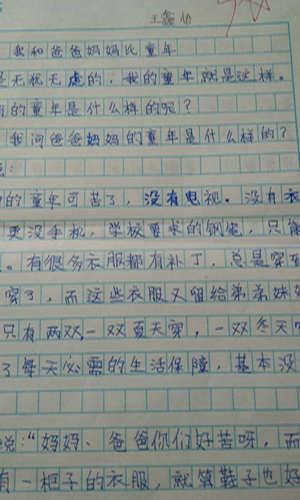 王鑫怡
我和爸爸妈妈比童年
是无忧无虑的，我的童年就是这样。
的童年是什么样的呢？
我问爸爸妈妈的童年是什么样的？
：
的童年可苦了，没有电视。没有衣
更没手机，学校要求的钢笔，只能
。有很多衣服都有补丁，总是穿
穿了，而这些衣服又留给弟弟妹
只有两双，一双夏天穿，一双冬天
了每天必需的生活保障，基本没
说：“妈妈、爸爸你们好苦呀，而
有一柜子的衣服，就算鞋子也好